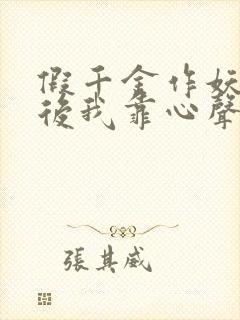 假千金作妖
後我靠心聲
張其威